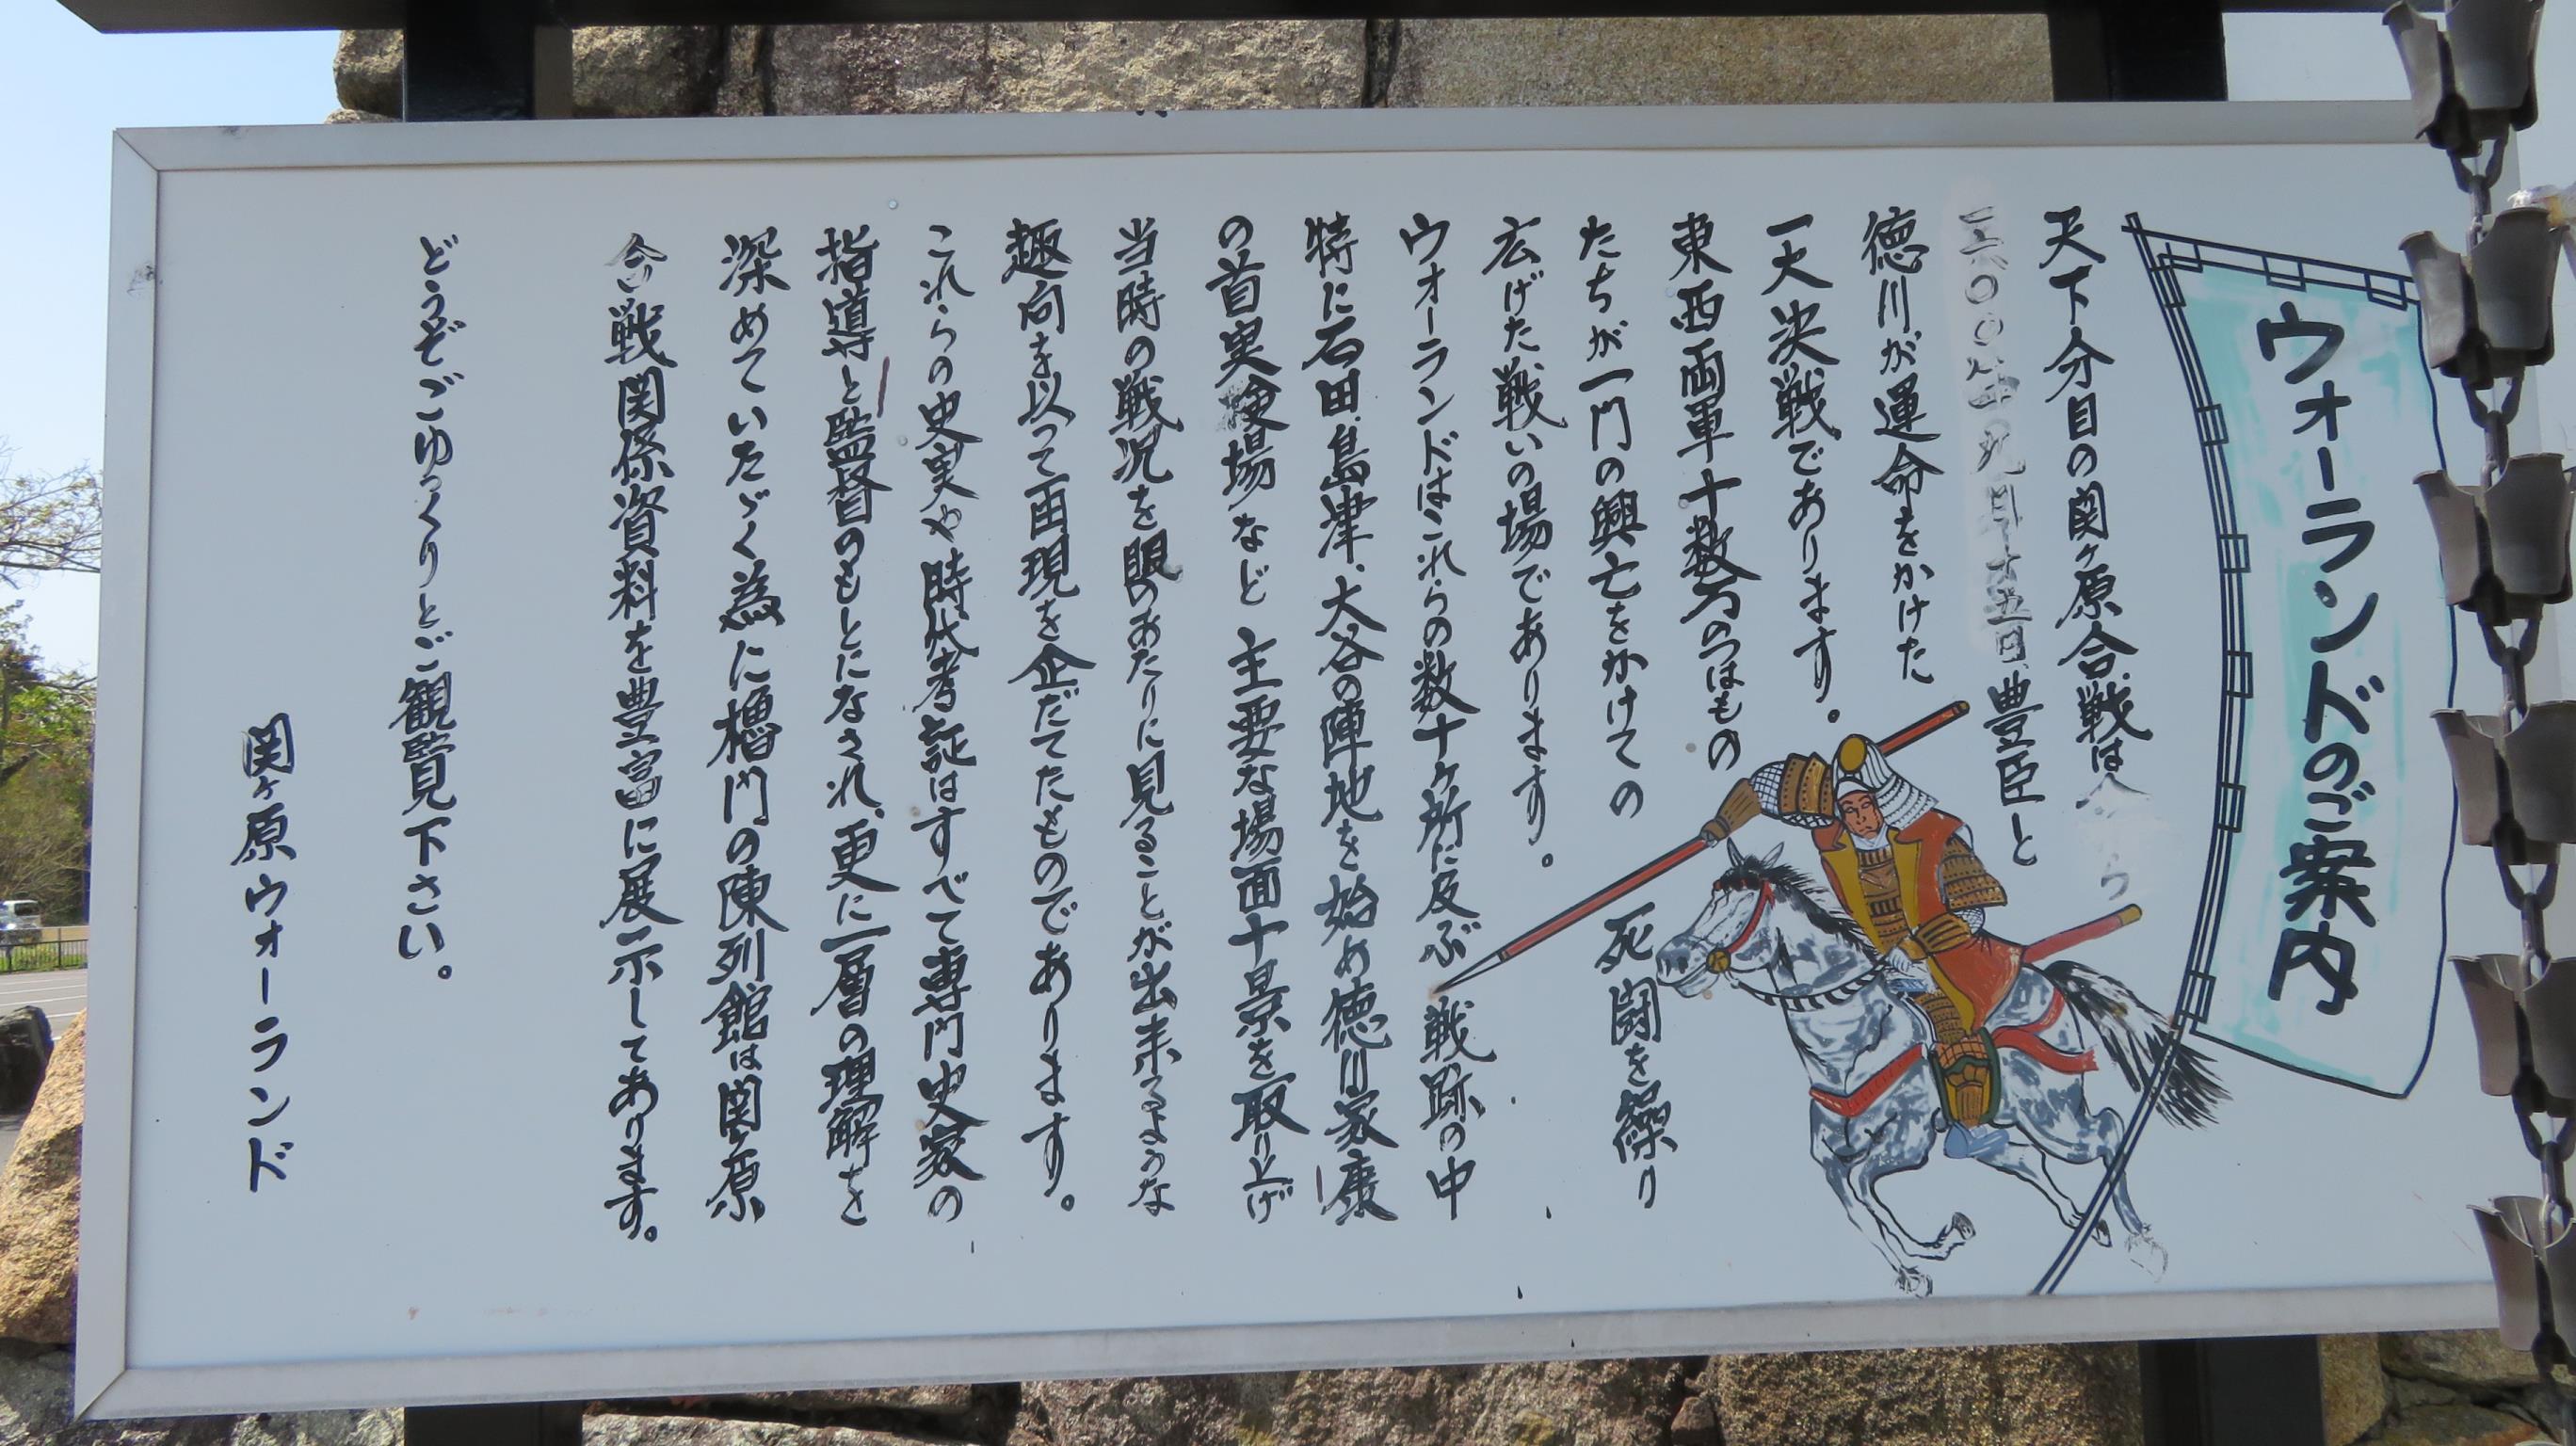 ウォーランドのご案内
天下分目の関ヶ原合戦は
一六〇〇年九月十五日、豊臣と
徳川が運命をかけた
一大決戦であります。
東西両軍十数万のつはもの
たちが一門の興亡をかけての
死闘を繰り
広げた戦いの場であります。
ウォーランドはこれらの数十ヶ所に及ぶ戦跡の中
特に石田、島津、大谷の陣地を始め徳川家康
の首実検場など主要な場面十景を取り上げ
当時の戦況を眼のあたりに見ることが出来るような
趣向を以って再現を企だてたものであります。
これらの史実や時代考証はすべて専門史家の
指導と監督のもとになされ、更に一層の理解を
深めていたゞく為に櫓門の陳列館は関ヶ原
合戦関係資料を豊富に展示してあります。
どうぞごゆっくりとご観覧下さい。
関ヶ原ウォーランド